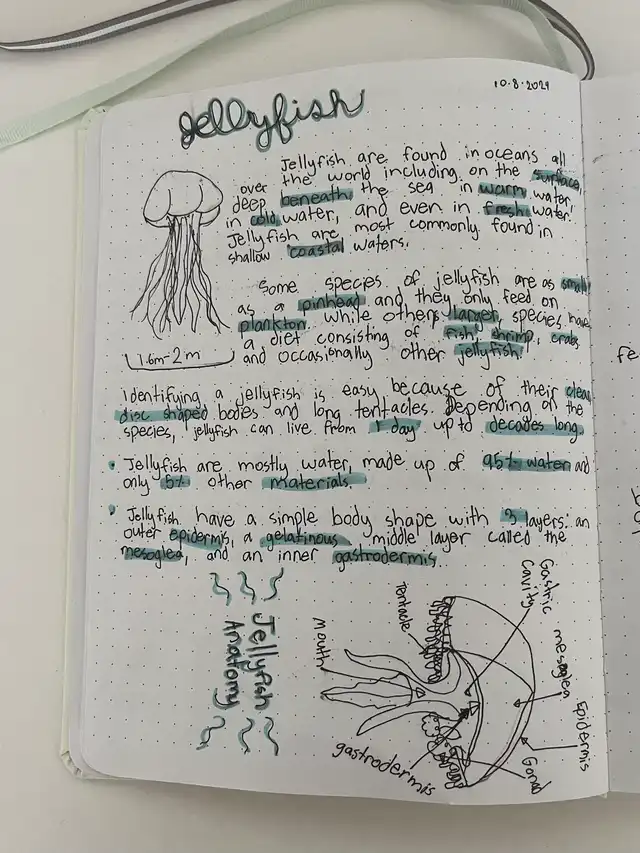 10.8.2021
Jellyfish
Jellyfish are found in oceans all
over the world including on the surface,
deep beneath the sea in warm water,
in cold water, and even in fresh water!
Jellyfish are most commonly found in
shallow coastal waters.
Some species of jellyfish are as small
as a pinhead and they only feed on
plankton. While others, larger, species have
a diet consisting of fish, shrimp, crabs
and occasionally other jellyfish!
1.6m-2m
Identifying a jellyfish is easy because of their clear
disc shaped bodies and long tentacles. Depending on the
species, jellyfish can live from 1 day up to decades long.
• Jellyfish are mostly water, made up of 95% water and
only 5% other materials.
• Jellyfish have a simple body shape with 3 layers: an
outer epidermis, a gelatinous middle layer called the
mesoglea, and an inner gastrodermis.
Jellyfish
Anatomy
Mouth
Tentacle
Gastric
Cavity
mesoglea
Epidermis
Gonad
gastrodermis
Fe